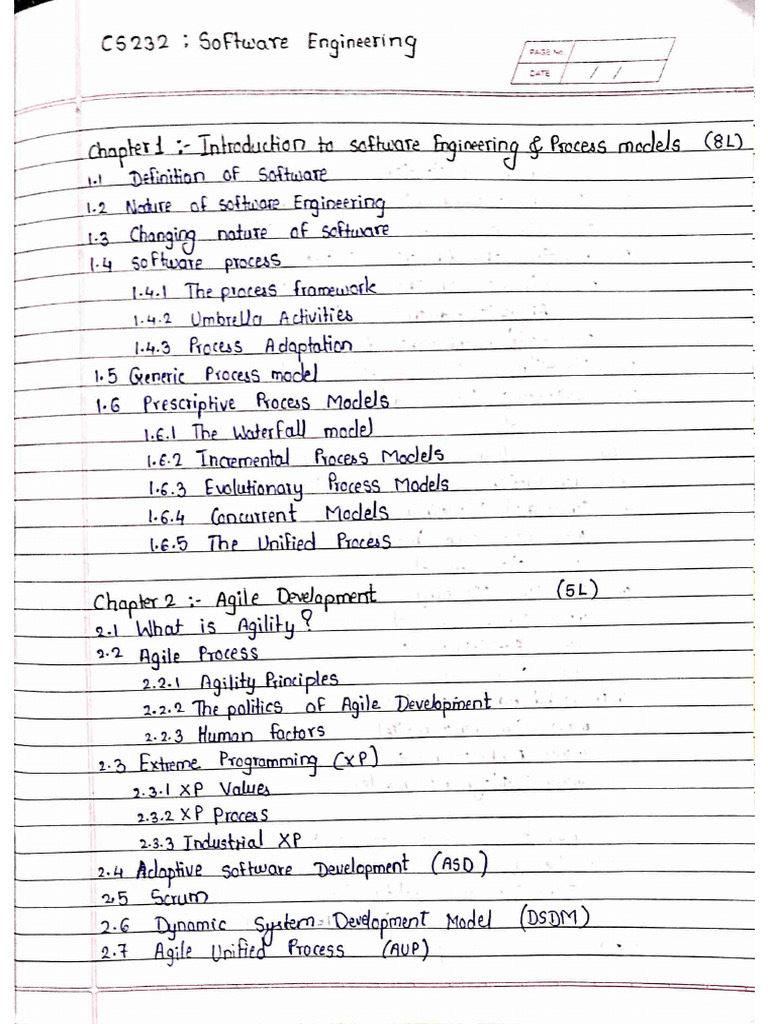 CS232 : Software Engineering
PAGE No.
DATE / /
Chapter 1 :- Introduction to software Engineering & Process models (8L)
1.1 Definition of Software
1.2 Nature of software Engineering
1.3 Changing nature of software
1.4 software process
1.4.1 The process framework
1.4.2 Umbrella Activities
1.4.3 Process Adaptation
1.5 Generic Process model
1.6 Prescriptive Process Models
1.6.1 The Waterfall model
1.6.2 Incremental Process Models
1.6.3 Evolutionary Process Models
1.6.4 Concurrent Models
1.6.5 The Unified Process
Chapter 2 :- Agile Development (5L)
2.1 What is Agility?
2.2 Agile Process
2.2.1 Agility Principles
2.2.2 The politics of Agile Development
2.2.3 Human factors
2.3 Extreme Programming (XP)
2.3.1 XP Values
2.3.2 XP Process
2.3.3 Industrial XP
2.4 Adaptive software Development (ASD)
2.5 Scrum
2.6 Dynamic System Development Model (DSDM)
2.7 Agile Unified Process (AUP)